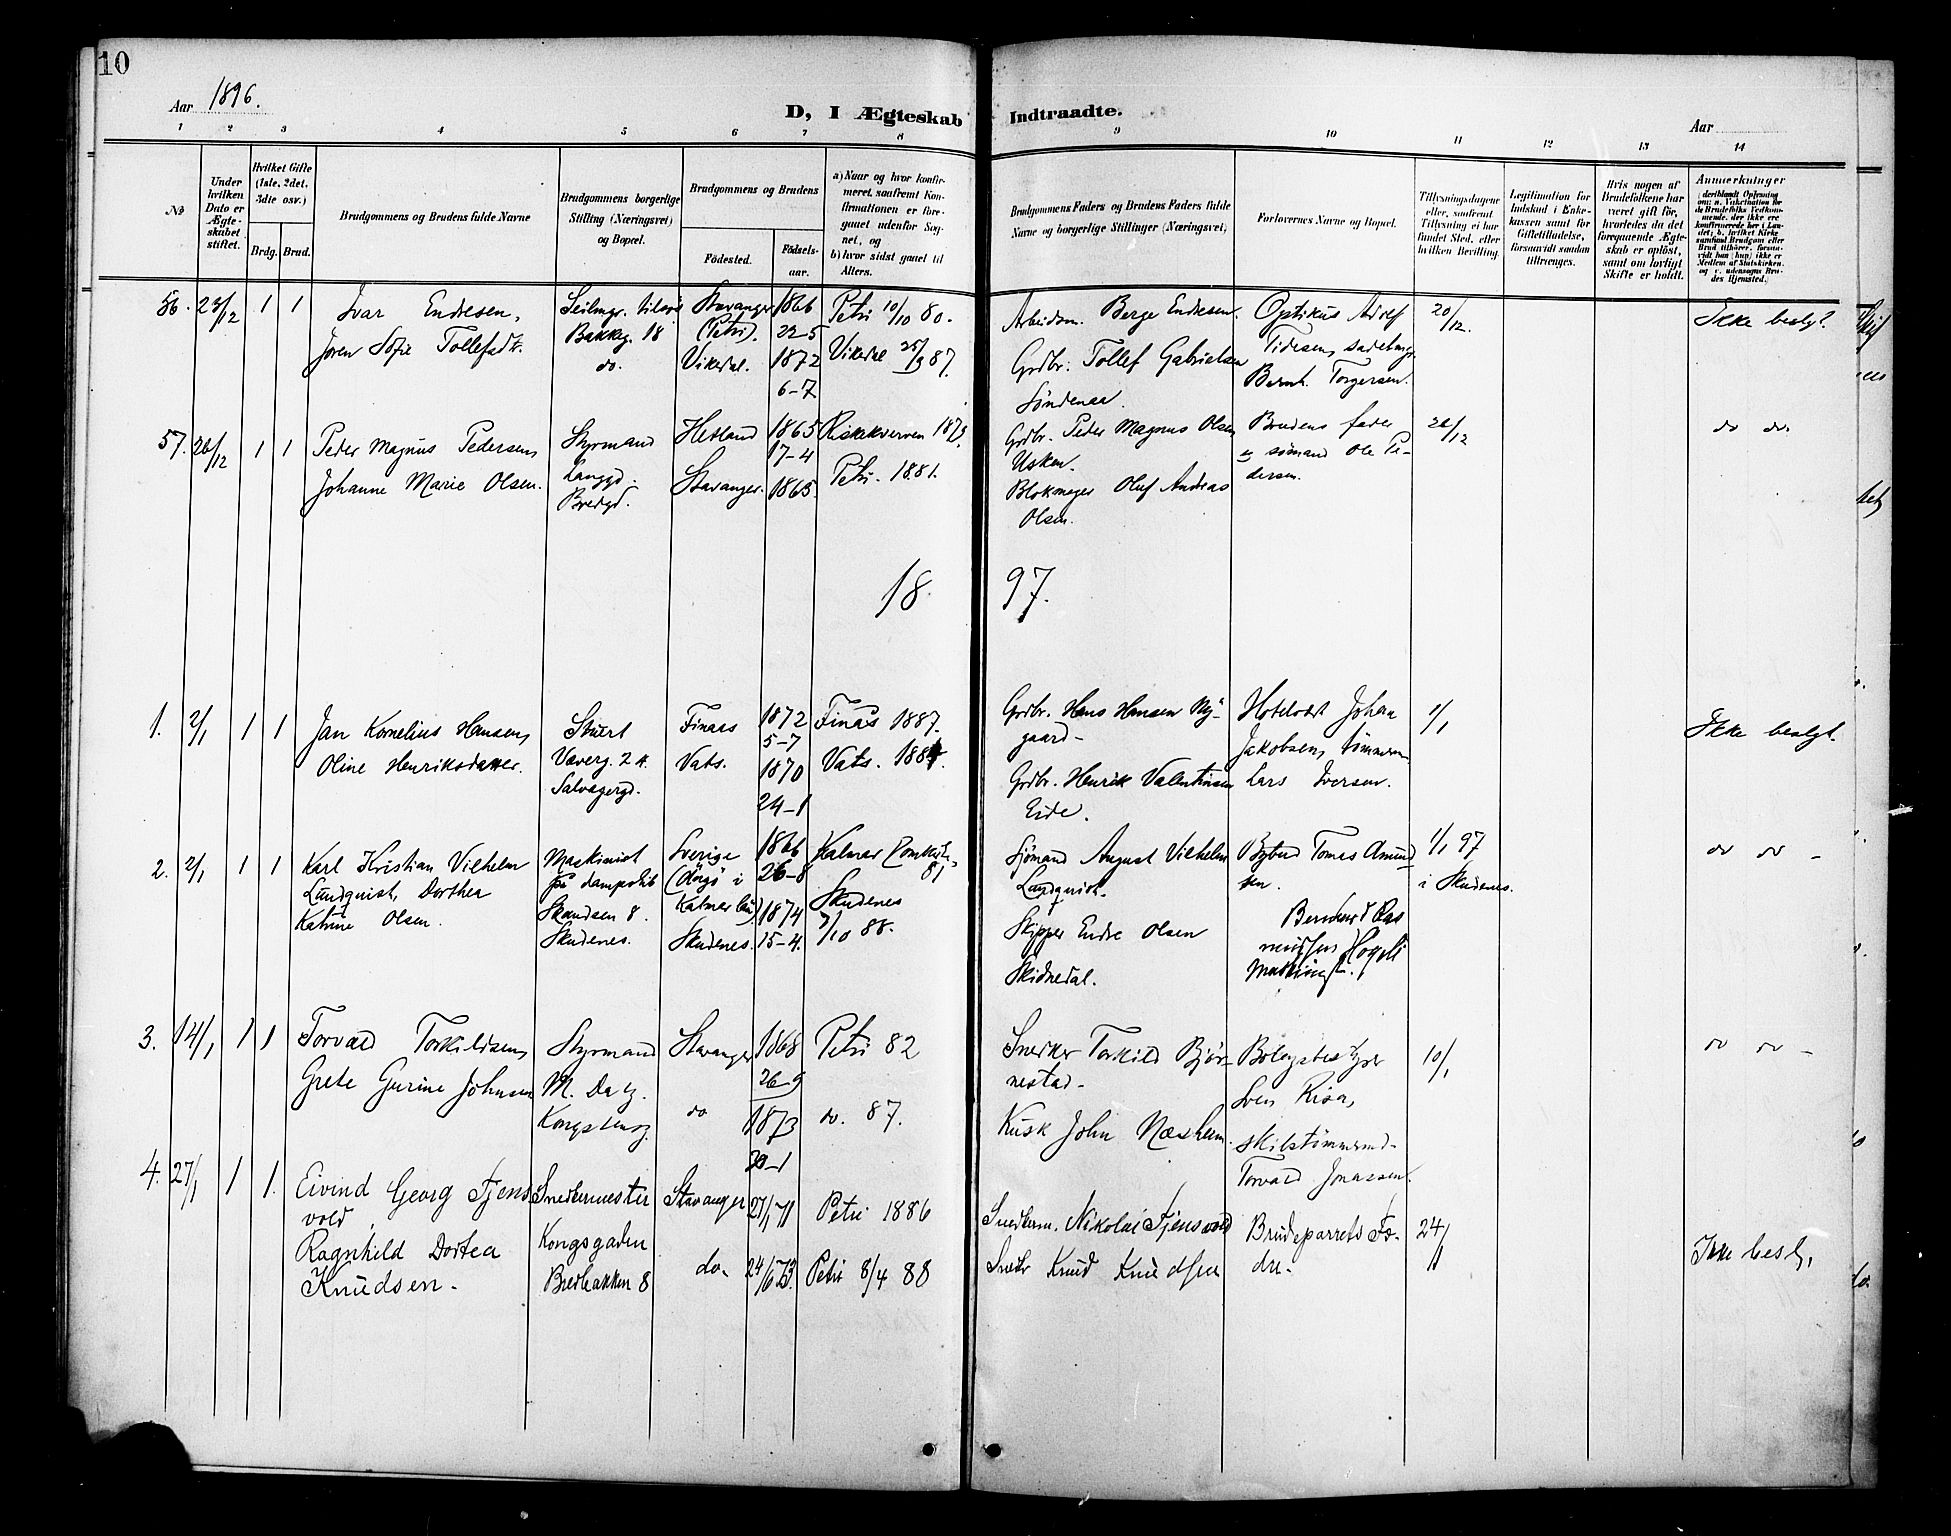 10
Aar 1896.
D, I Ægteskab Indtraadte.
Aar
1 2 3 4 5 6 7 8 9 10 11 12 13 14
No
Under hvilken Dato er Ægteskabet stiftet.
Hvilket Gifte (1ste, 2det, 3die osv.)
Brdg. Brud.
Brudgommens og Brudens fulde Navne
Brudgommens borgerlige Stilling (Næringsvei) og Bopæl.
Brudgommens og Brudens
Fødested. Fødsels-aar.
a) Naar og hvor konfirmeret, saafremt Konfirmationen er foregaaet udenfor Sognet, og
b) hvor sidst gaaet til Alters.
Brudgommens Faders og Brudens Faders fulde Navne og borgerlige Stillinger (Næringsvei)
Forlovernes Navne og Bopæl.
Tillysningsdagene eller, saafremt Tillysning ei har fundet Sted, efter hvilken Bevilling.
Legitimation for Indskud i Enkekassen samt for Giftetilladelse, forsaavidt saadan tiltrænges.
Hvis nogen af Brudefolkene har været gift før, hvorledes da det foregaaende Ægteskab er opløst, samt om lovligt Skifte er holdt.
Anmærkninger
56. 1 1 Ivar Endresen, Stavanger 1866 Petri 10/10 80. Arbeidsm. Berge Endresen Optikus Adolf 20/12. Ikke beslgt.
Joren Sofie Tollefsdtr. Bakkeg. 18 (Petri). 22-5
do. Vikedal. 1872 Vikedal 87. Grdbr. Tollef Gabrielsen Tidesen,
6-7 Søndenaa. Bernh. Torgersen.
57. 26/12 1 1 Peder Magnus Pedersen, Styrmand Hetland 1865 Grdbr. Peder Magnus Olsen Brudens fader do do.
17-4 Usken. og sømand Ole Pe-
Johanne Marie Olsen. Langgd. Stavanger. 1865. Petri. 1881. Blokmager Oluf Andreas dersen.
Bredgd. Olsen.
1897.
1. 2/1 1 1 Jan Kornelius Hansen, Stuert Finaas 1872 Finås 1887. Grdbr. Hans Hansen Ny- Johan 1/1 Ikke beslgt.
5-7 gaard- Jakobsen,
Oline Henriksdatter. Væverg. 24. Vats. 1870 Vats. Grdbr. Henrik Valentinsen Lars Iversen.
Salvagergd. 24-1 Eide.
2. 2/1 1 1 Karl Kristian Vilhelm Maskinist Sverige 1866 Kalmar 81 Sjømand August Vilhelm Tomas Amund- 1/1 97 do do -
Lundqvist, Dorthea på dampskib i 26-8 Lundqvist. sen. i Skudenes.
Katrine Olsen. Skandsen 8. Kalmar län) 1874 Skudenes Skipper Endre Olsen Bernhard Ras
Skudenes. Skudenes. 15-4. 7/10 88. Skidnedal. mussen
3. 14/1 1 1 Torvald Torkildsen, Styrmand Stavanger 1868 Petri 82 Snedker Torkild Bjør- Bolagsbestyrer 10/1 do do -
26-9 nestad- Sven Risa,
Grete Gurine Johnsen M. Datz. do 1873 do. 87. Kusk John Næsheim. skibstømmermd-
Kongstensg. 30-1 Torvald Jonassen.
4. 27/1 1 1. Eivind Georg Fjens Snedkermester Stavanger 27/1 71 Petri 1886 Snedkerm. Nikolai Fjensvold Brudeparrets Fæ- 24/1 Ikke besl,
vold Kongsgaden dre-
Ragnhild Dortea do. 24/6 73. Petri 8/4 88 Snedkr Knud Knudsen
Knudsen. Bredbakken 8